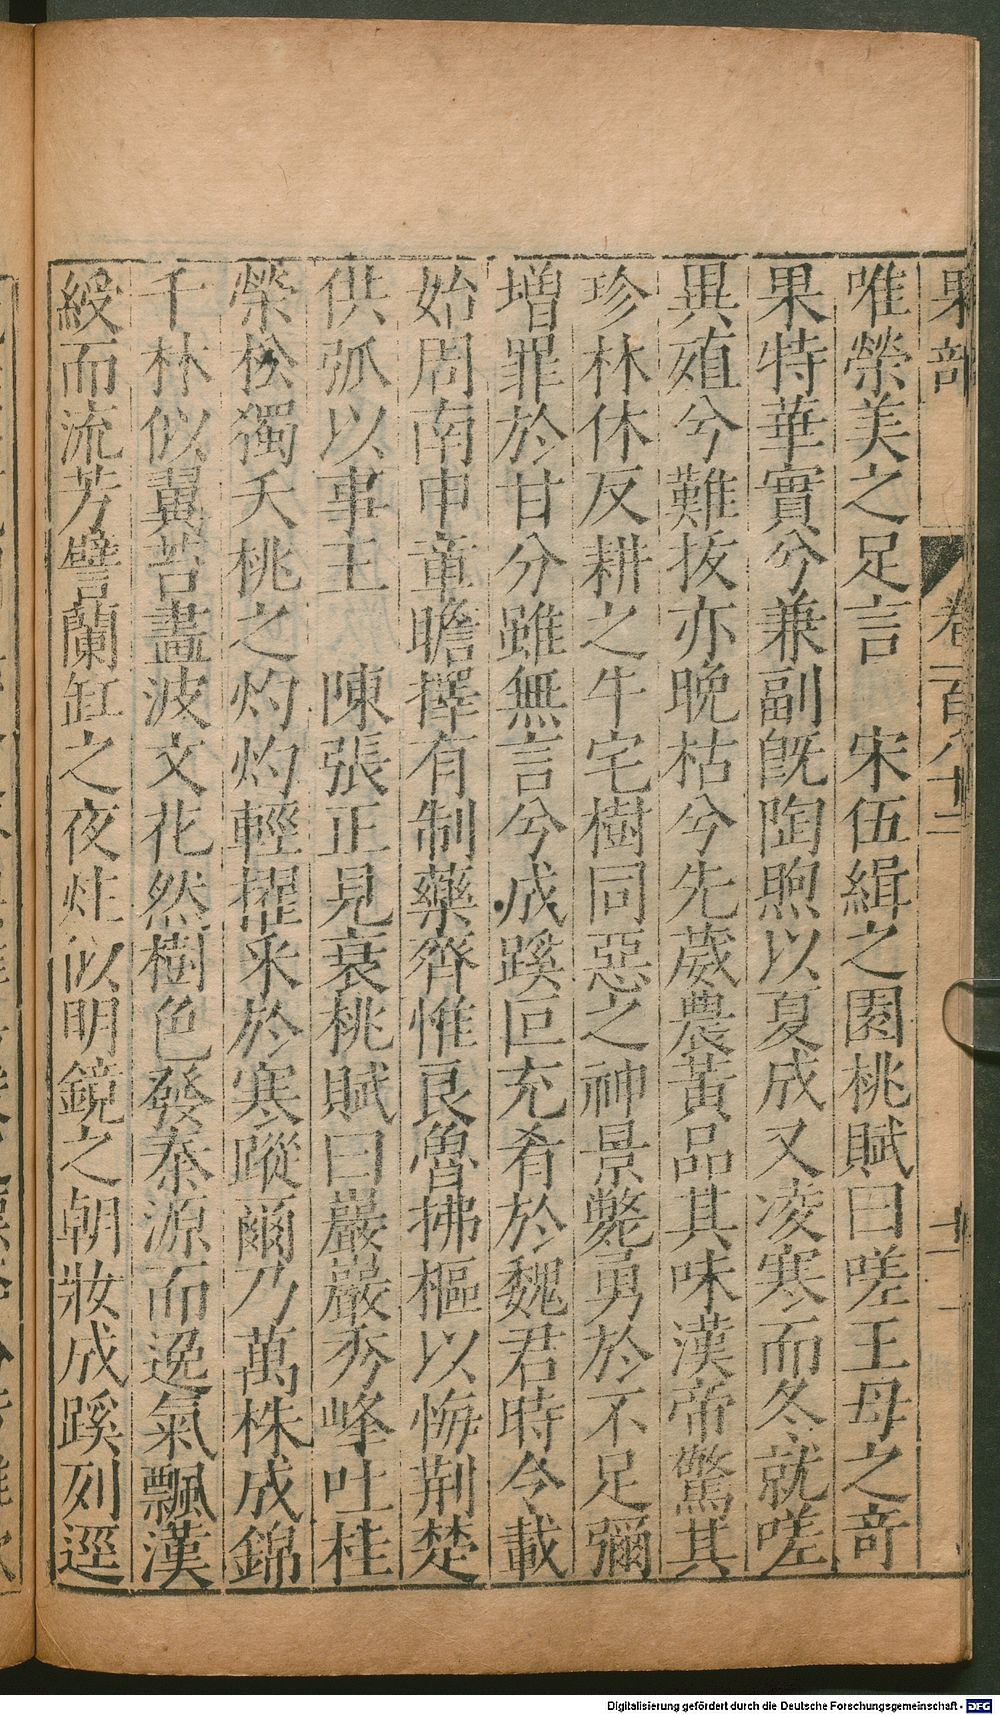 果部 卷一百八十二 十一
唯榮美之足言 宋伍緝之園桃賦曰嗟王母之奇
果特華實兮兼副旣陶煦以夏成又凌寒而冬就嗟
異殖兮難拔亦晚枯兮先葳農黃品其味漢帝驚其
珍林休反耕之牛宅樹同惡之神景斃勇於不足彌
增罪於甘分雖無言兮成蹊叵充肴於魏君時今載
始周南申章瞻擇有制藥齊惟良魯拂樞以悔荆楚
供弧以事王 陳張正見衰桃賦曰嚴嚴秀峰吐桂
榮松獨夭桃之灼灼輕擢釆於寒蹤爾乃萬株成錦
千林似翼苔畫波文花然樹色發秦源而逸氣飄漢
綬而流芳譬蘭缸之夜炷似明鏡之朝妝成蹊列逕
Digitalisierung gefördert durch die Deutsche Forschungsgemeinschaft - DFG